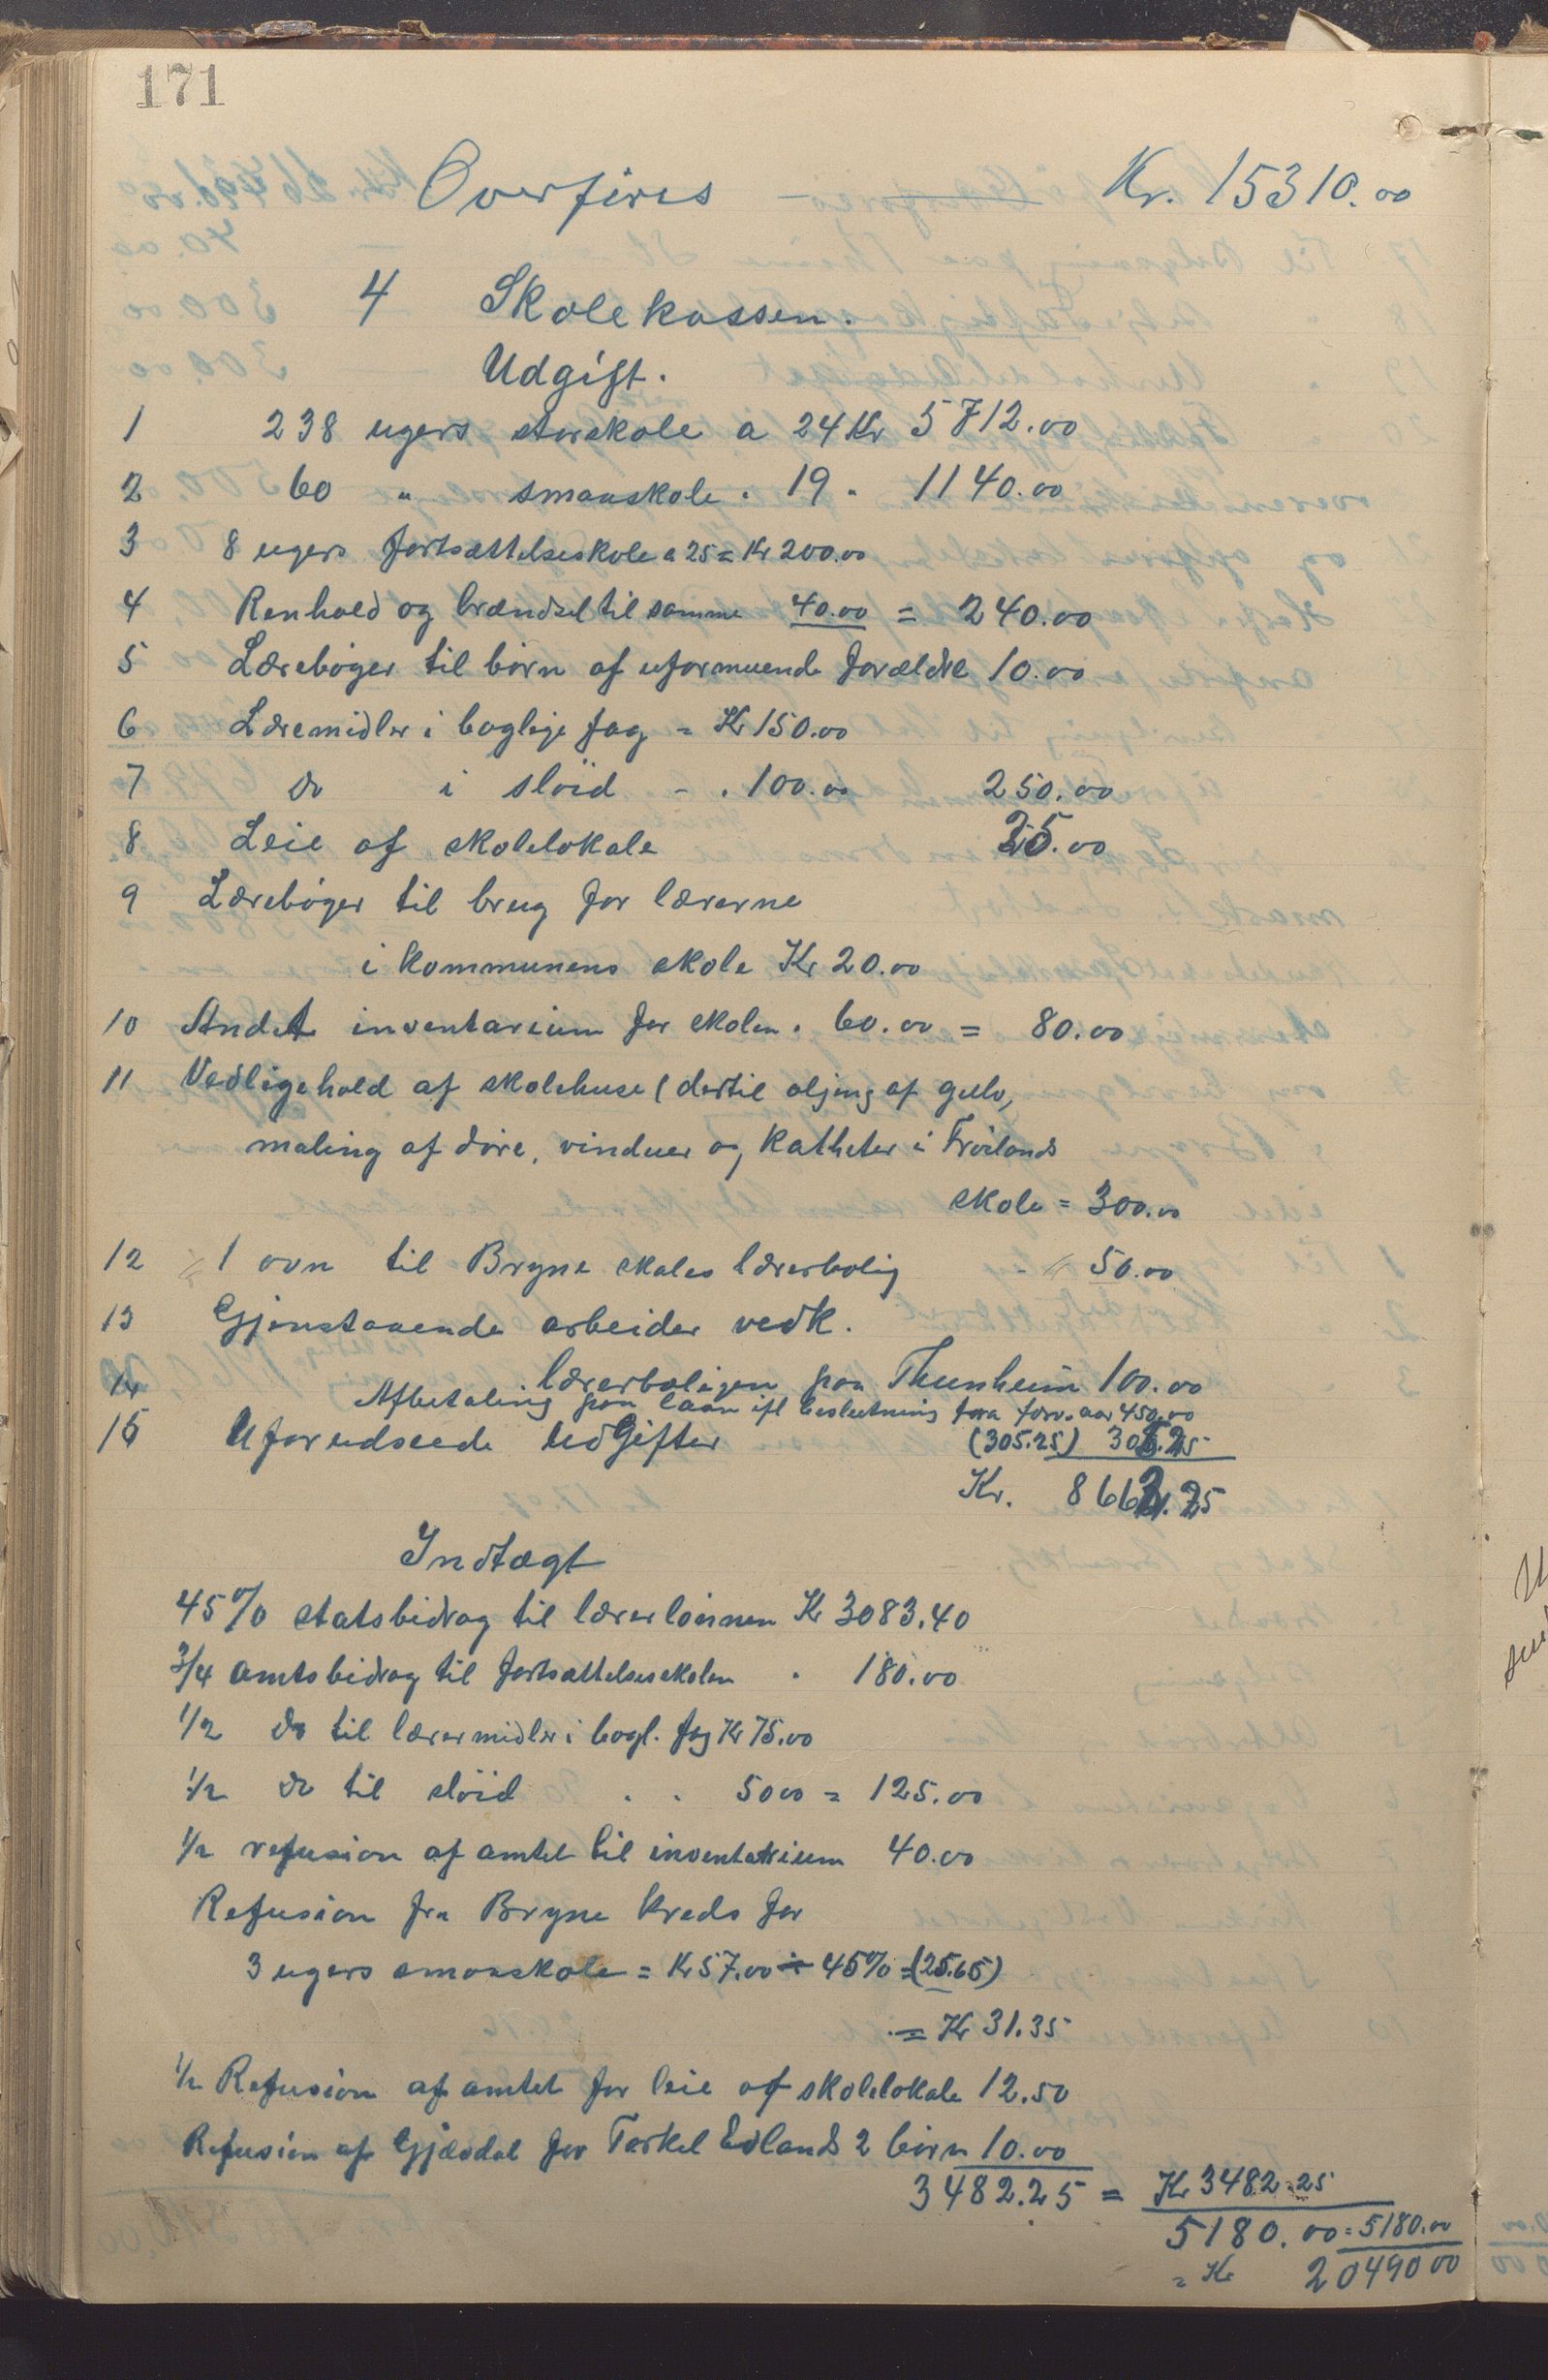 171
Overføres Kr. 15310.00
4 Skolekassen.
Udgift.
1 238 ugers storskole a 24 Kr 5712.00
2 60 " smaaskole . 19 " 1140.00
3 8 ugers fortsættelseskole a 25 = Kr 200.00
4 Renhold og brændsel til samme 40.00 = 240.00
5 Lærebøger til børn af uformuende forældre 10.00
6 Læremidler i boglige fag = Kr 150.00
7 do i sløid - . 100.00 250.00
8 Leie af skolelokale 25.00
9 Lærebøger til brug for lærerne
i kommunens skole Kr 20.00
10 Andet inventarium for skolen . 60.00 = 80.00
11 Vedligehold af skolehuse (dertil oljing af gulv,
maling af døre, vinduer og Katheter i Frøilands
skole = 300.00
12 1 ovn til Bryne skoles lærerbolig - 50.00
13 Gjenstaaende arbeider vedk.
lærerboligen paa Thunheim 100.00
14 Afbetaling paa laan ifl beslutning fra forr. aar 450.00
15 Uforudseede udgifter (305.25) 305.25
Kr. 8662.25
Indtægt
45% statsbidrag til lærerlønnen Kr 3083.40
3/4 amtsbidrag til fortsættelsesskolen . 180.00
1/2 do til lærermidler i bogl. fag Kr 75.00
1/2 do til sløid . . 50 00 = 125.00
1/2 refusion af amtet til inventarium 40.00
Refusion fra Bryne kreds for
3 ugers smaaskole = Kr 57.00 ÷ 45% = (25.65)
= Kr 31.35
1/2 Refusion af amtet for leie af skolelokale 12.50
Refusion af Gjæsdal for Torkel Edlands 2 børn 10.00
3482.25 = Kr 3482.25
5180.00 = 5180.00
= Kr 20490 00